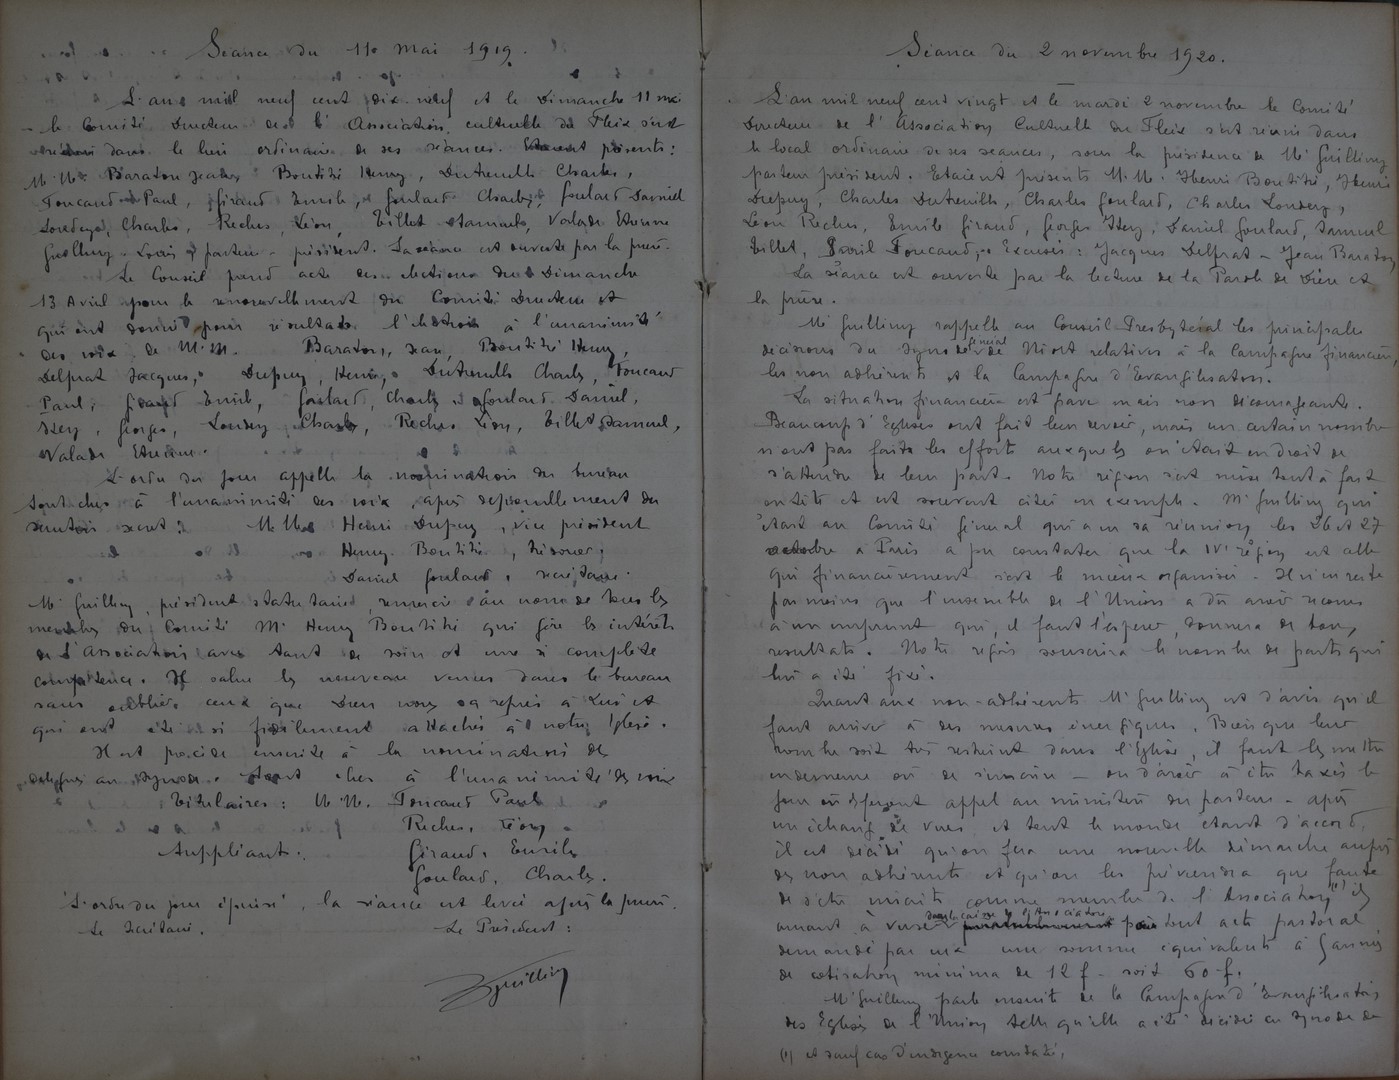 Séance du 11 mai 1919.
L'an mil neuf cent dix-neuf et le Dimanche 11 mai
le Comité Directeur de l'Association cultuelle du Fleix s'est
réuni dans le lieu ordinaire de ses séances. Etaient présents:
M.M. Baraton Jean, Boutitié Henry, Dutreuilh Charles,
Foucaud Paul, Giraud Emile, Goulard Charles, Goulard Daniel
Charles, Reches, Léon, Tillet Samuel, Valade Etienne
Guilling Louis pasteur-président. La séance est ouverte par la prière.
Le Conseil prend acte des élections du Dimanche
13 Avril pour le renouvellement du Comité Directeur et
qui ont donné pour résultats l'élection à l'unanimité
des voix de M.M. Baraton, Jean, Boutitié Henry,
Delprat Jacques, Dupuy, Henri, Dutreuilh Charles, Foucaud
Paul, Giraud Emile, Goulard, Charles, Goulard Daniel,
Georges, Charles, Reches Léon, Tillet Samuel,
Valade Etienne.
L'ordre du jour appelle la nomination du bureau
Sont élus à l'unanimité des voix, après dépouillement du
scrutin secret: M.M. Henri Dupuy, vice président
Henry Boutitié, trésorier,
Daniel Goulard, secrétaire.
Mr Guilling, président statutaire, remercie au nom de tous les
membres du Comité Mr Henry Boutitié qui gère les intérêts
de l'Association avec tant de soin et une si complète
compétence. Il salue les nouveaux venus dans le bureau
sans oublier ceux que Dieu nous a repris à Lui et
qui ont été si fidèlement attachés à notre Eglise.
Il est procédé ensuite à la nomination de
délégués au synode. Sont élus à l'unanimité des voix
Titulaires: M.M. Foucaud Paul
Reches, Léon
Suppléant: Giraud, Emile
Goulard, Charles.
L'ordre du jour épuisé, la séance est levée après la prière.
Le Secrétaire. Le Président:
Guilling
Séance du 2 novembre 1920.
L'an mil neuf cent vingt et le mardi 2 novembre le Comité
Directeur de l'Association Cultuelle du Fleix s'est réuni dans
le local ordinaire de ses séances, sous la présidence de Mr Guilling
pasteur président. Etaient présents M.M. Henri Boutitié, Henri
Dupuy, Charles Dutreuilh, Charles Goulard, Charles
Léon Reches, Emile Giraud, Georges Daniel Goulard, Samuel
Tillet, Paul Foucaud, Excusés: Jacques Delprat - Jean Baraton
La séance est ouverte par la lecture de la Parole de Dieu et
la prière.
Mr Guilling rappelle au Conseil Presbytéral les principales
décisions du Synode général de Niort relatives à la Campagne financière,
les non adhérents et la Campagne d'Evangélisation.
La situation financière est grave mais non décourageante.
Beaucoup d'Eglises ont fait leur devoir, mais un certain nombre
n'ont pas faits les effort auxquels on était en droit de
s'attendre de leur part. Notre région s'est mise tout à fait
en tête et est souvent citée en exemple. Mr Guilling qui
était au Comité général qui a eu sa réunion les 26 et 27
octobre à Paris a pu constater que la IVe région est celle
qui financièrement s'est le mieux organisée. Il n'en reste
pas moins que l'ensemble de l'Union a dû avoir recours
à un emprunt qui, il faut l'espérer, donnera de bons
résultats. Notre région souscrira le nombre de parts qui
lui a été fixé.
Quant aux non-adhérents Mr Guilling est d'avis qu'il
faut arriver à des mesures énergiques. Bien que leur
nombre soit très restreint dans l'Eglise, il faut les mettre
en demeure où de s'inscrire - ou d'avoir à être taxés le
jour où ils feront appel au ministère du pasteur - après
un échange de vues et tout le monde étant d'accord,
il est décidé qu'on fera une nouvelle démarche auprès
des non adhérents et qu'on les préviendra que faute
de s'être inscrits comme membre de l'Association (1) ils
auront à verser dans la caisse de l'Association pour tout acte pastoral
demandé par eux une somme équivalente à 5 années
de cotisation minima de 12 f - soit 60 f.
Mr Guilling parle ensuite de la Campagne d'Evangélisation
des Eglises de l'Union telle qu'elle a été décidée au synode de
(1) et sauf cas d'indigence constatée,